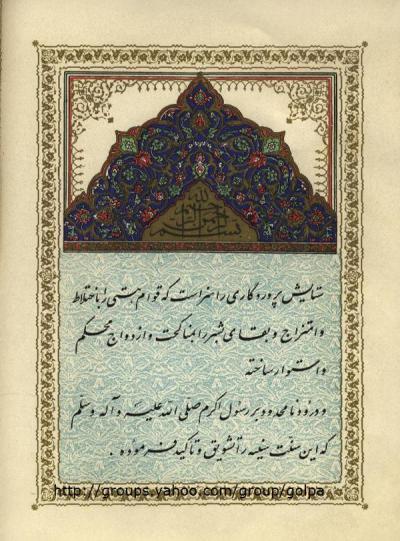 بسم الله الرحمن الرحیم
ستایش پروردگاری را سزاست که قوام هستی را باختلاط
و امتزاج و بقای بشر را بمناکحت و ازدواج محکم
و استوار ساخته
و درود نامحدود بر رسول اکرم صلی الله علیه و آله و سلم
که این سنت سنیه را تشویق و تاکید فرموده .
http://groups.yahoo.com/group/golpa